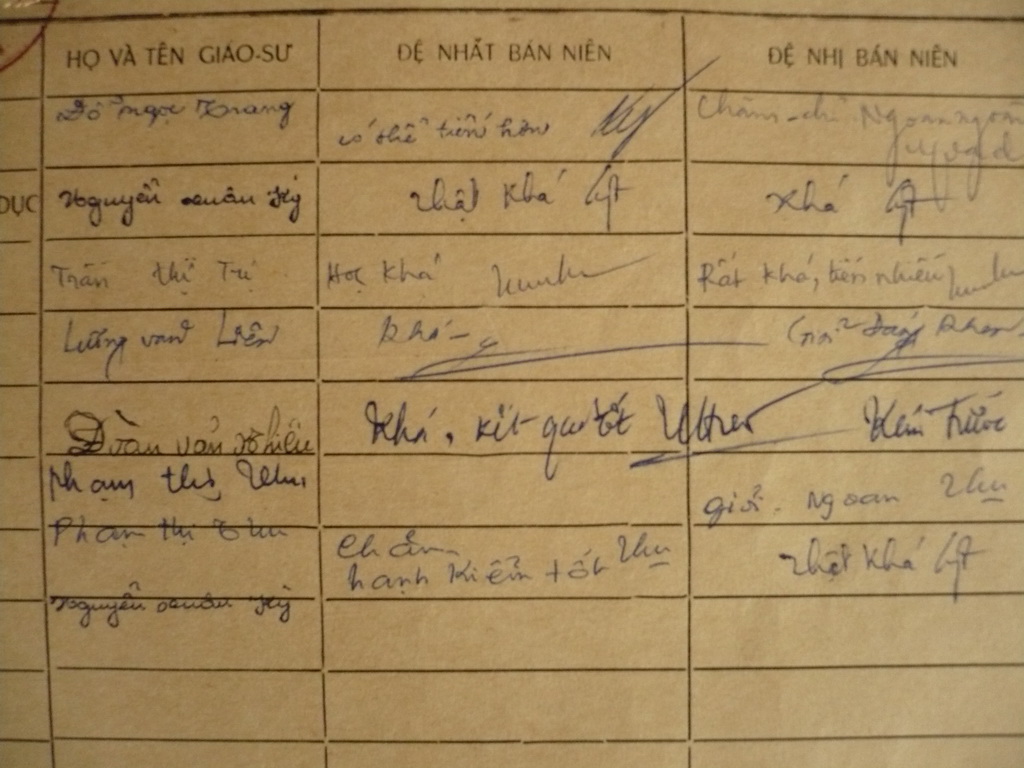 HỌ VÀ TÊN GIÁO-SƯ ĐỆ NHẤT BÁN NIÊN ĐỆ NHỊ BÁN NIÊN
Đỗ ngọc Trang có thể tiến hơn Chăm-chỉ. Ngoan ngoãn
DỤC Nguyễn xuân Kỳ Thật Khá Khá
Trần thị Trị Học Khá Rất Khá, tiến nhiều
Lương văn Liên Khá Giỏi Đáng Khen
Đoàn văn Khá, kết quả tốt Kém trước
Phạm thị Thu giỏi. Ngoan Thu
Phạm thị Thu Chăm
hạnh Kiểm tốt Thu Thật Khá
Nguyễn xuân Kỳ